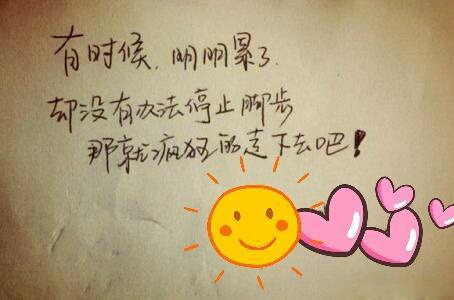 有时候，明明累了.
却没有办法停止脚步
那就疯狂的走下去吧！